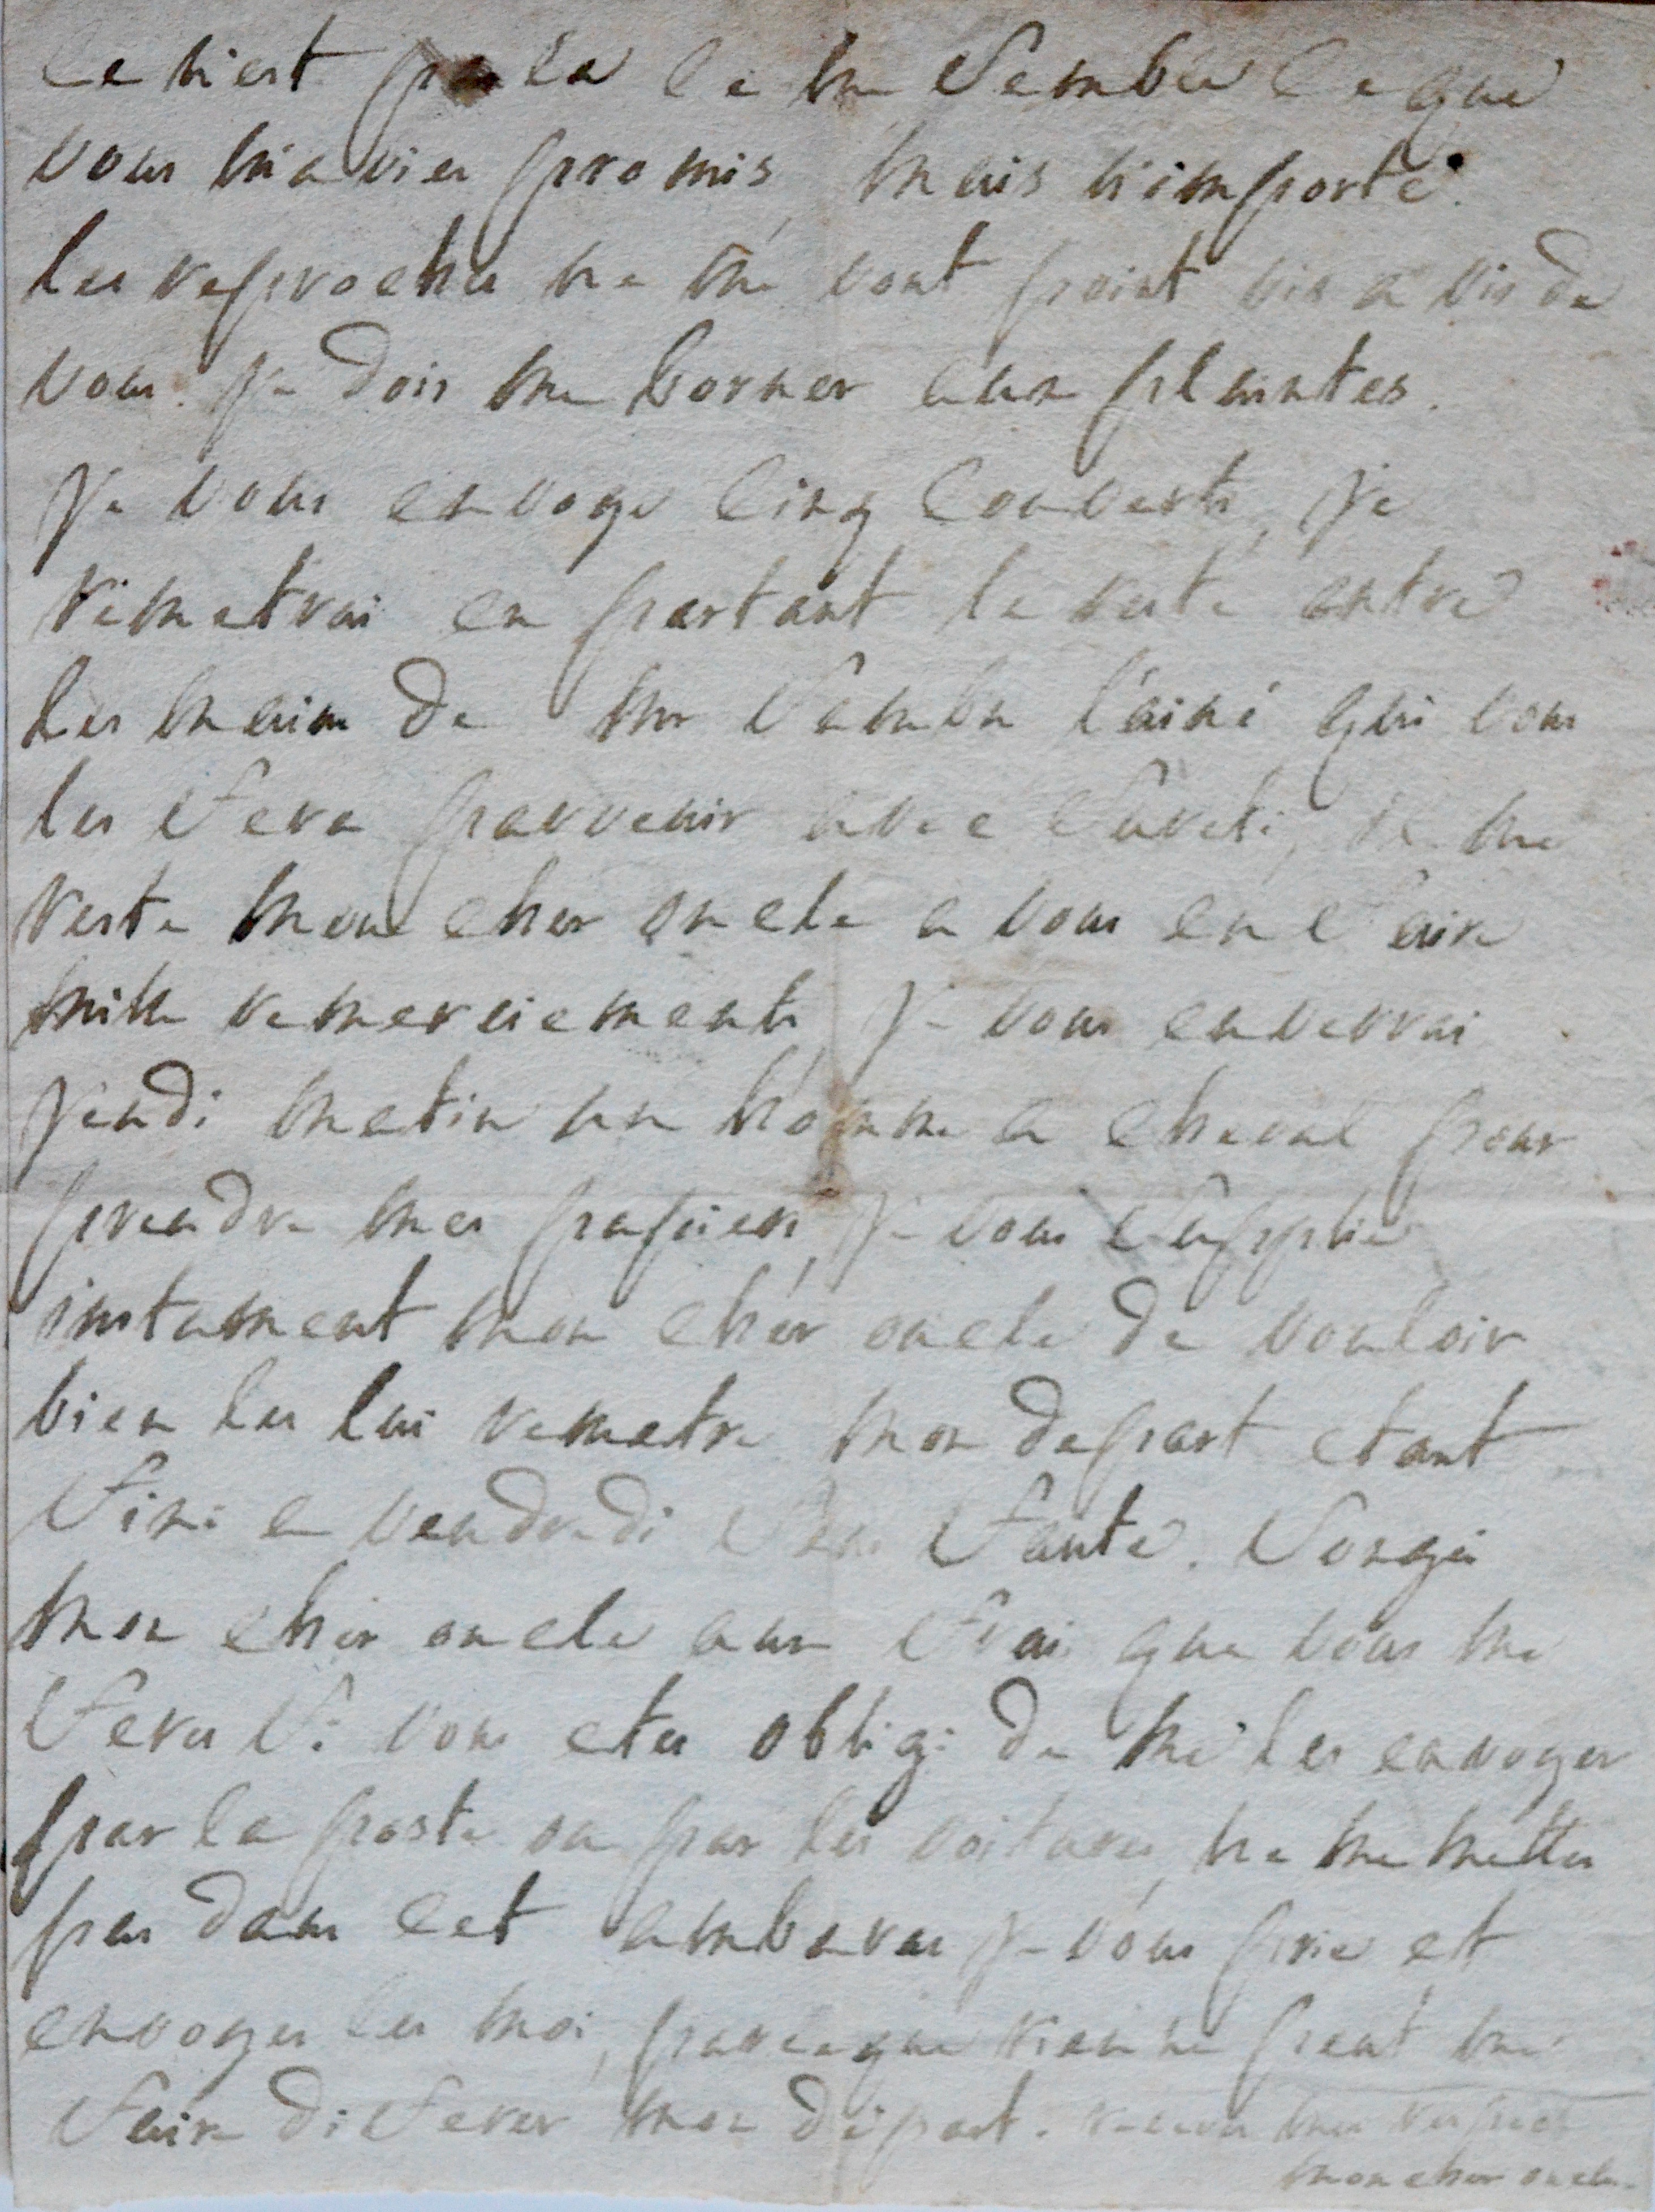 ce n'est pas la ce me semble ce que
vous m'avies promis, mais n'importe.
les reproches ne me vont point vis a vis de
vous. je dois me borner aux plaintes.
je vous envoye cinq couverts, je
remetrai en partant le reste entre
les mains de mr l'ainé qui vous
les fera parvenir avec sureté, il me
reste mon cher oncle a vous en faire
mille remerciements, je vous enverrai
jeudi matin un homme a cheval pour
prendre mes papiers, je vous supplie
instament mon cher oncle de vouloir
bien les lui remetre mon depart etant
fixé a vendredi sans faute. songés
mon cher oncle aux frais que vous me
ferés si vous etes obligé de me les envoyer
par la poste ou par les voitures, ne me mettes
pas dans cet ambaras je vous prie et
envoyes les moi, parceque rien ne peut me
faire diferer mon départ. recevez mes respects
mon cher oncle.